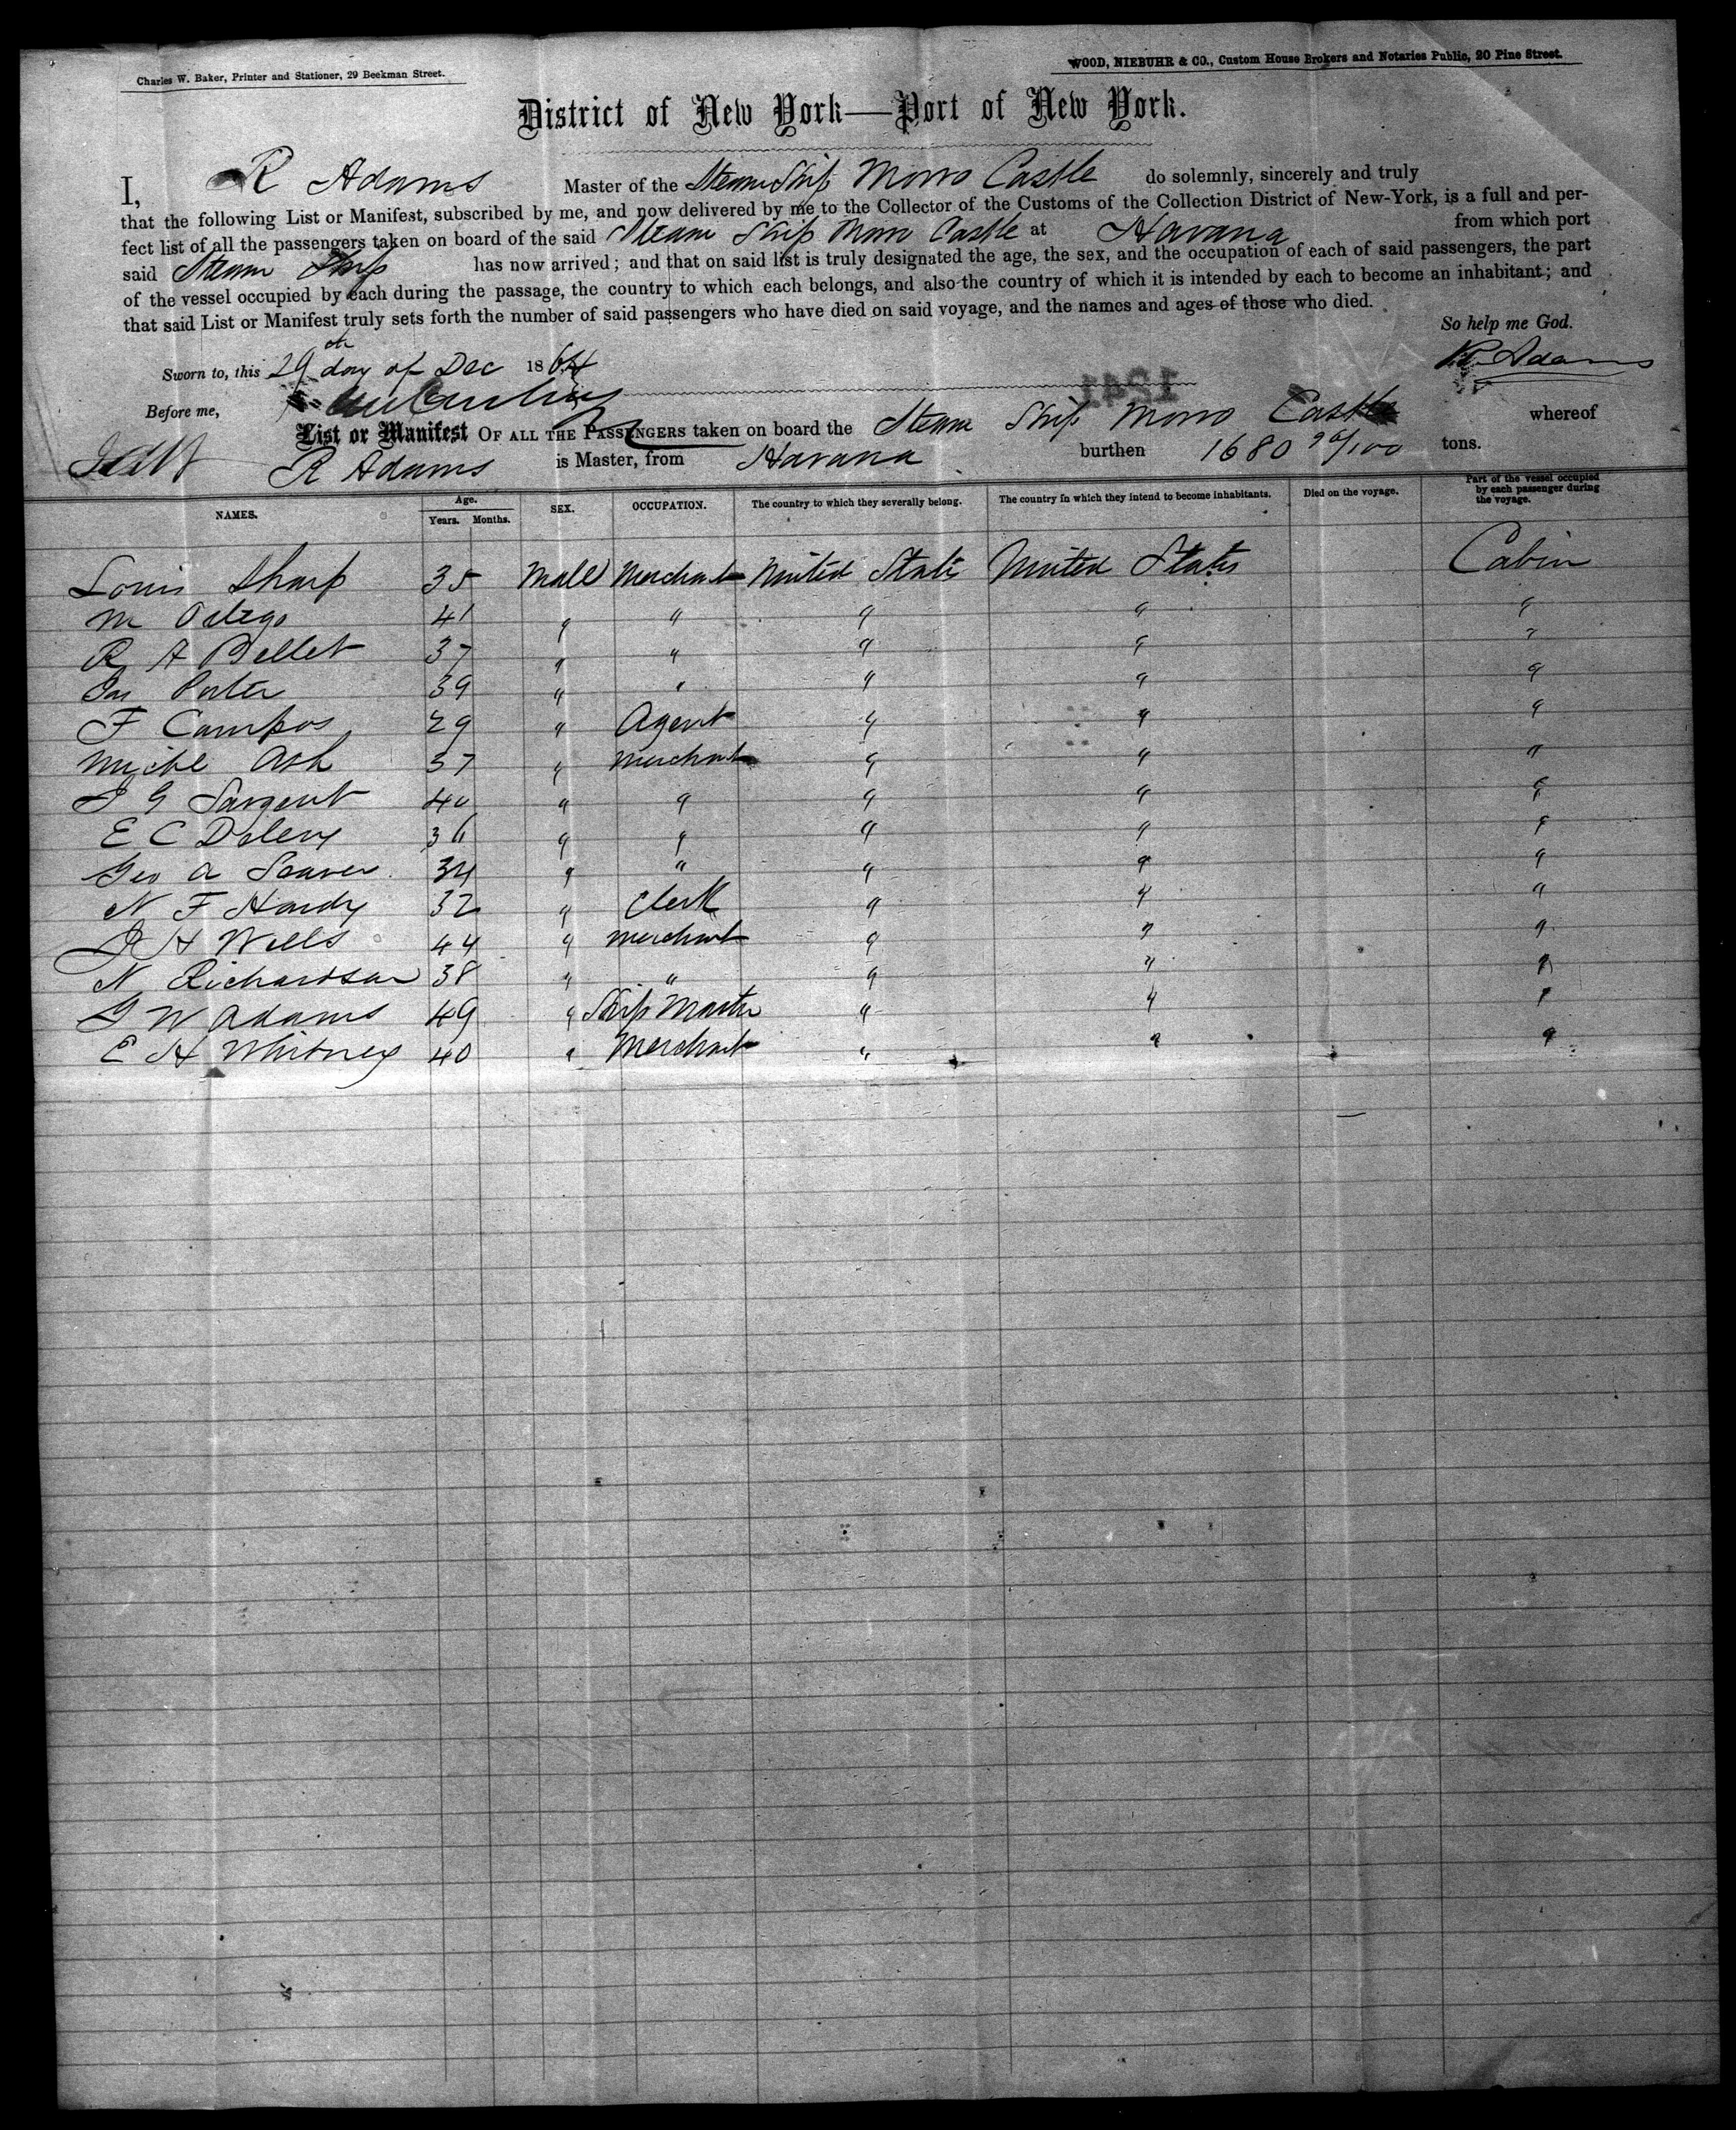 Charles W. Baker, Printer and Stationer, 29 Beekman Street.
WOOD, NIEBUHR & CO., Custom House Brokers and Notaries Public, 20 Pine Street.
District of New York—Port of New York.
I, R Adams Master of the Steam Ship Morro Castle do solemnly, sincerely and truly
that the following List or Manifest, subscribed by me, and now delivered by me to the Collector of the Customs of the Collection District of New-York, is a full and per-
fect list of all the passengers taken on board of the said Steam Ship Morro Castle at Havana from which port
said Steam Ship has now arrived; and that on said list is truly designated the age, the sex, and the occupation of each of said passengers, the part
of the vessel occupied by each during the passage, the country to which each belongs, and also the country of which it is intended by each to become an inhabitant; and
that said List or Manifest truly sets forth the number of said passengers who have died on said voyage, and the names and ages of those who died.
So help me God.
Sworn to, this 29th day of Dec 1864
R Adams
Before me,
1241
List or Manifest OF ALL THE PASSENGERS taken on board the Steam Ship Morro Castle whereof
R Adams is Master, from Havana burthen 1680 96/100 tons.
NAMES. Age. Years. Months. SEX. OCCUPATION. The country to which they severally belong. The country in which they intend to become inhabitants. Died on the voyage. Part of the vessel occupied by each passenger during the voyage.
Louis Sharp 35 Male Merchant United States United States Cabin
M Ortego 41 " " " " "
R A Bellet 37 " " " " "
Jas Porter 39 " " " " "
F Campos 29 " Agent " " "
Michl Ash 37 " Merchant " " "
J G Sargent 40 " " " " "
E C 36 " " " " "
Geo A Seaver 34 " " " " "
N F Hardy 32 " Clerk " " "
J H Wells 44 " Merchant " " "
N Richardson 38 " " " " "
G W Adams 49 " Ship Master " " "
E H Whitney 40 " Merchant " " "